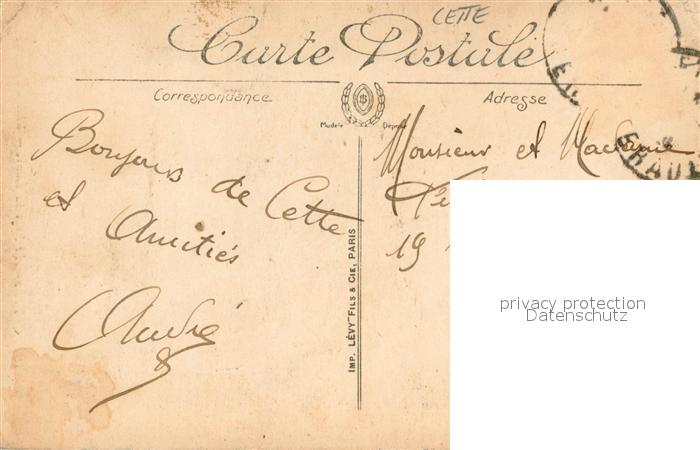 CETTE
Carte Postale
Correspondance
Adresse
Modèle Déposé
Bonjour de Cette
et Amitiés
André
IMP. LÉVY FILS & CIE, PARIS
Monsieur et Madame
19
ERAULT
privacy protection
Datenschutz